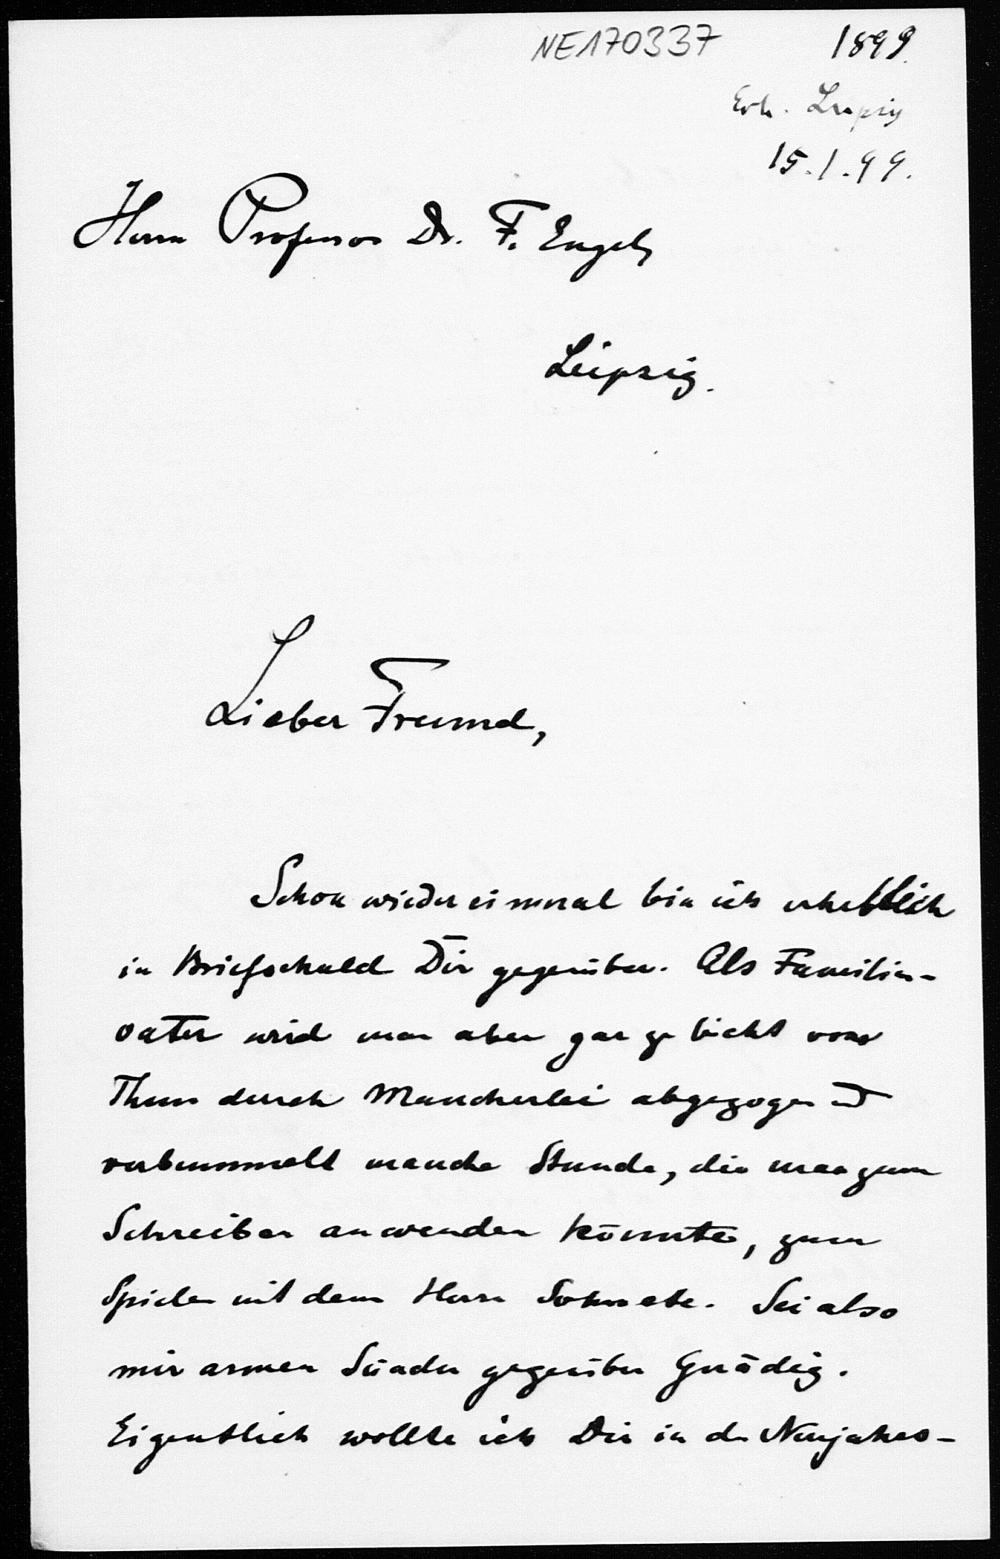 NE170337
1899.
Erh. Leipzig
15.1.99.
Herrn Professor Dr. F. Engel,
Leipzig.
Lieber Freund,
Schon wieder einmal bin ich erheblich
in Briefschuld Dir gegenüber. Als Familien-
vater wird man aber gar zu leicht vom
Thun durch Mancherlei abgezogen und
verbummelt manche Stunde, die man zum
Schreiben anwenden könnte, zum
Spielen mit dem Herrn Sohn etc. Sei also
mir armen Sünder gegenüber gnädig.
Eigentlich wollte ich Dir in den Neujahrs-